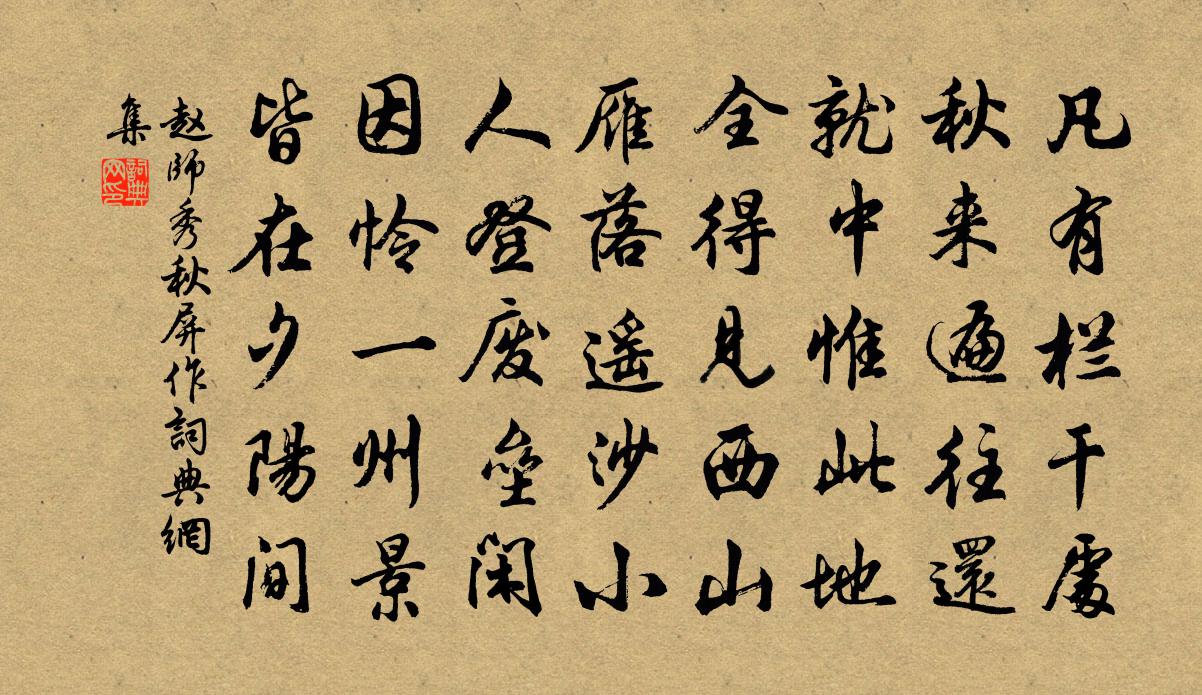 凡有栏干處
秋来遍往還
就中惟此地
全得見西山
雁落遥沙小
人登废壘闲
因怜一州景
皆在夕陽间
赵師秀秋屏作詞典網
集
詞典
网印